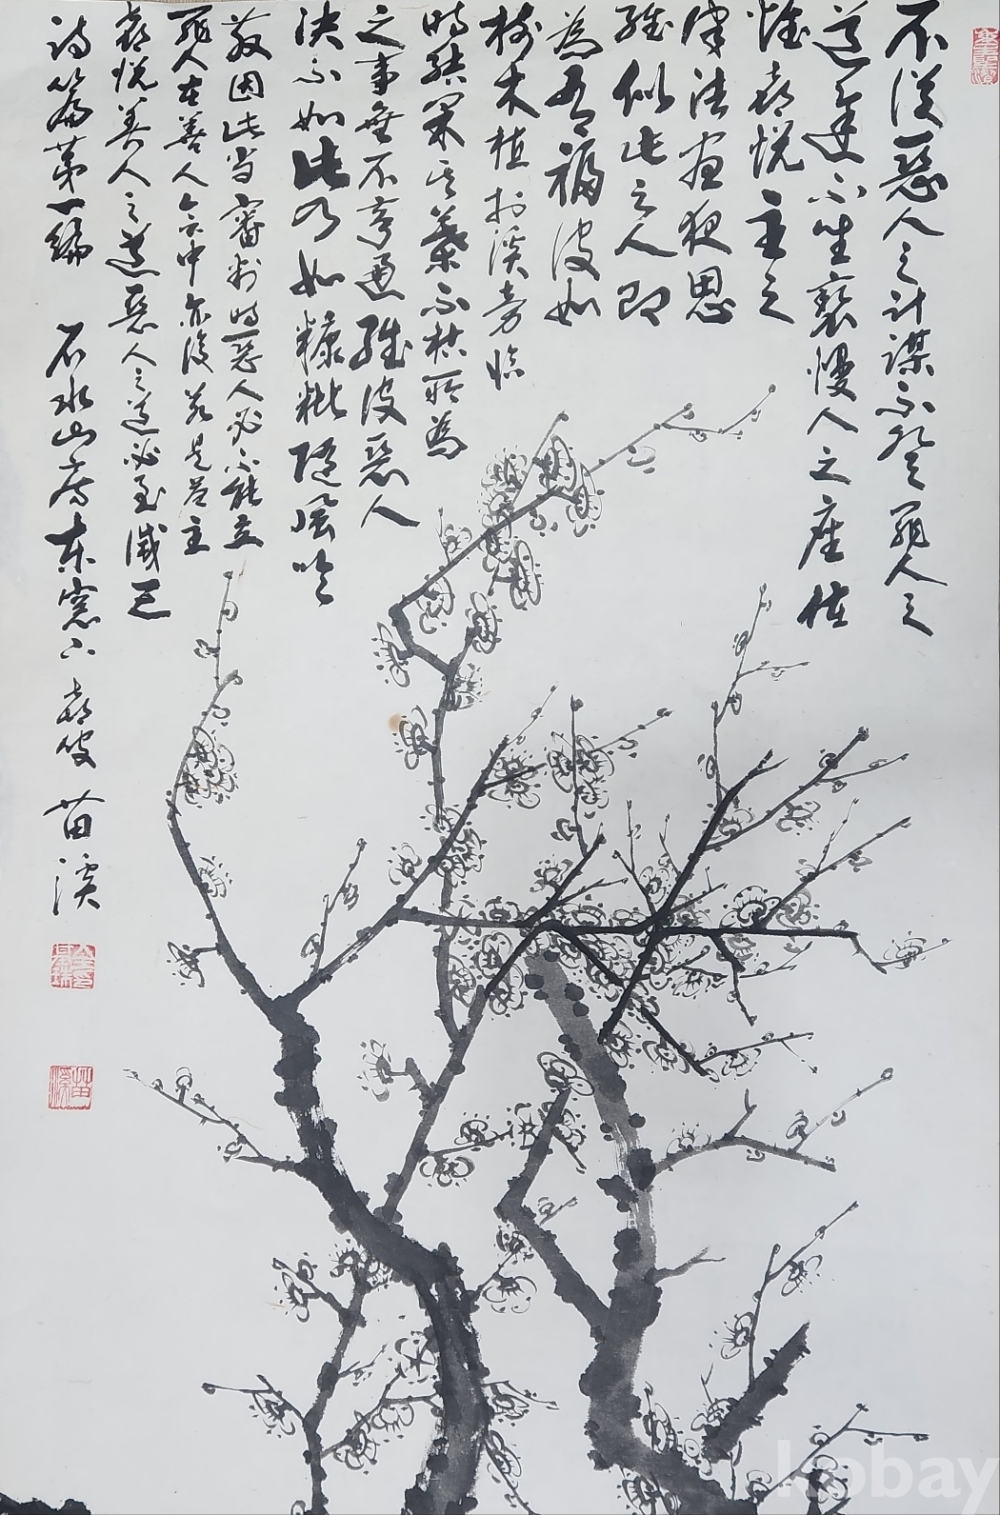 不從惡人之計謀不登罪人之
道途不坐褻慢人之座位
惟喜悅主之
律法晝夜思
維似此之人即
為有福彼如
樹木植於溪旁臨
時結果其葉不枯所為
之事無不亨通維彼惡人
決不如此乃如糠粃隨風吹
散因此當審判時惡人必不能立
罪人在善人會中亦復若是蓋主
喜悅善人之道惡人之道必至滅亡
詩篇第一編 石水山房東窓下 苗溪
苗溪
kobay